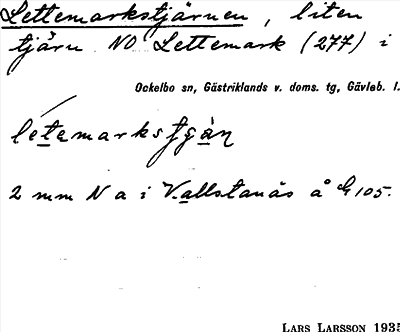 Lettemarkstjärnen, liten
tjärn NO Lettemark (277) i
Ockelbo sn, Gästriklands v. doms. tg, Gävleb. l.
létemarks
2 mm N a i Vallstanås å
LARS LARSSON 1935